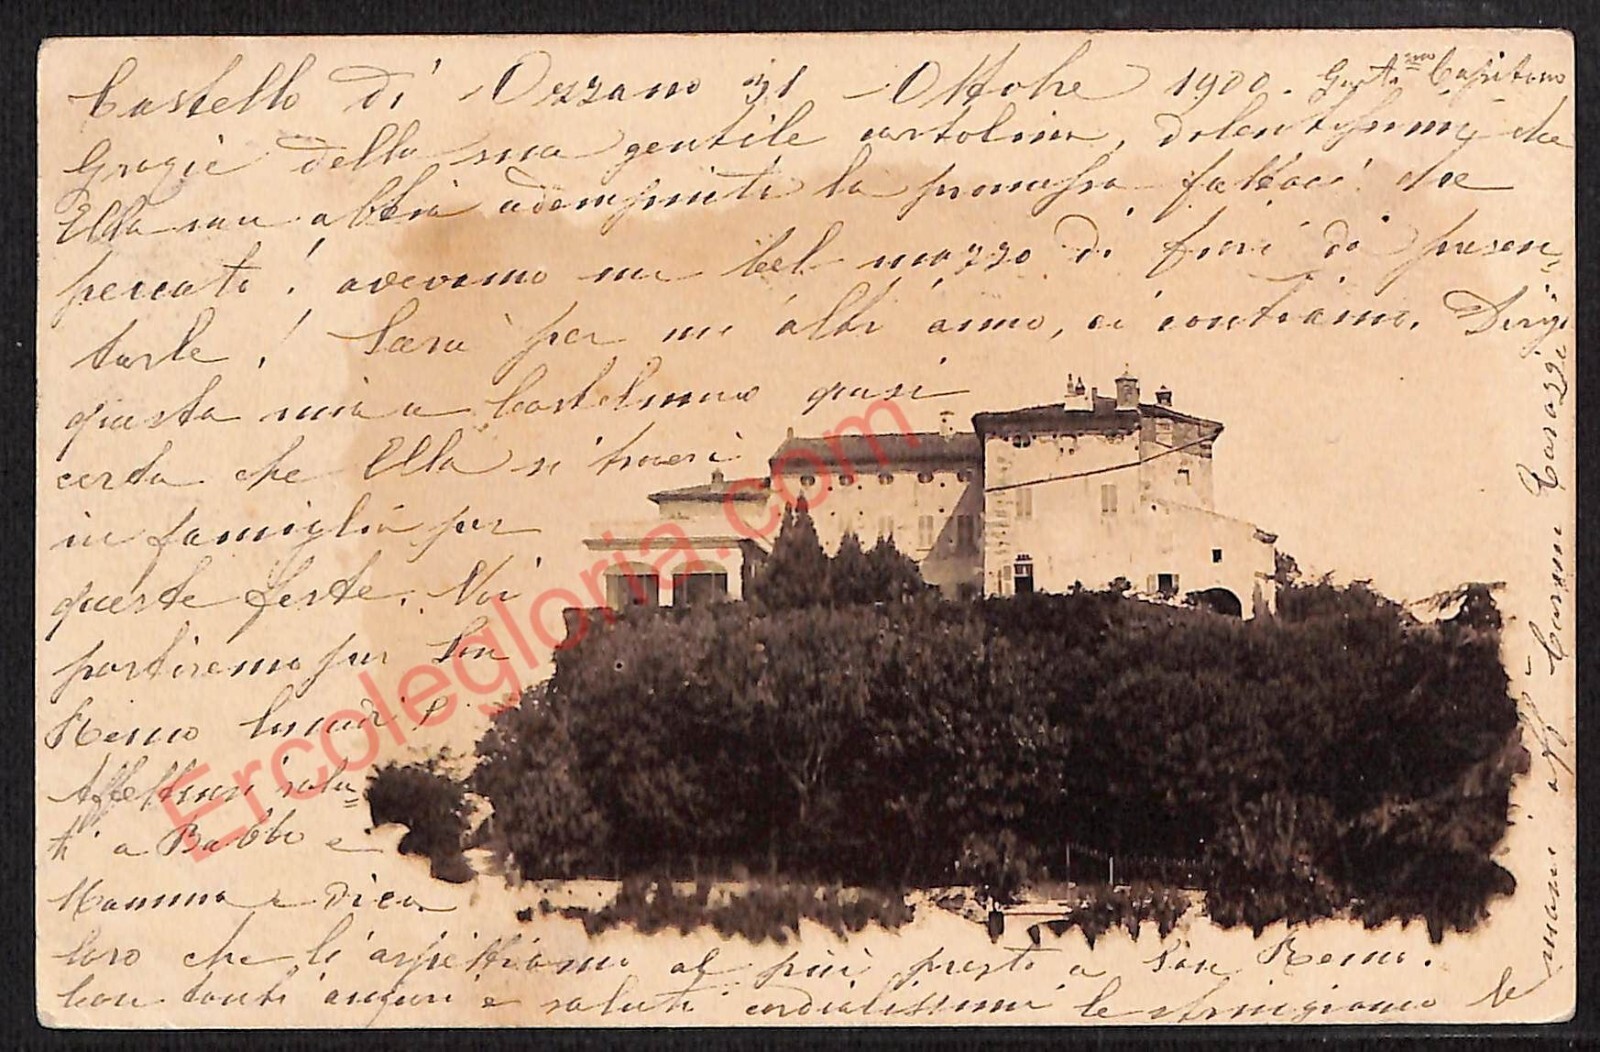 Castello di Ozzano 31 Ottobre 1900. Capitano
Grazie della sua gentile cartolina, dolentissimi che
Ella non abbia adempiuto la promessa fattaci che
peccato! avevamo un bel mazzo di fiori di presen=
tarle! Sarà per un altr'anno, ci contiamo. Dirigo
questa mia a quasi
certa che Ella si trovi
in famiglia per
queste feste. Noi
partiremo per San
Remo lunedì
Affettuosi salu=
ti a Babbo e
Mamma e dica
loro che li aspettiamo al più presto a San Remo.
Con tanti auguri e saluti cordialissimi le stringiamo le
mani aff
Ercolegloria.com